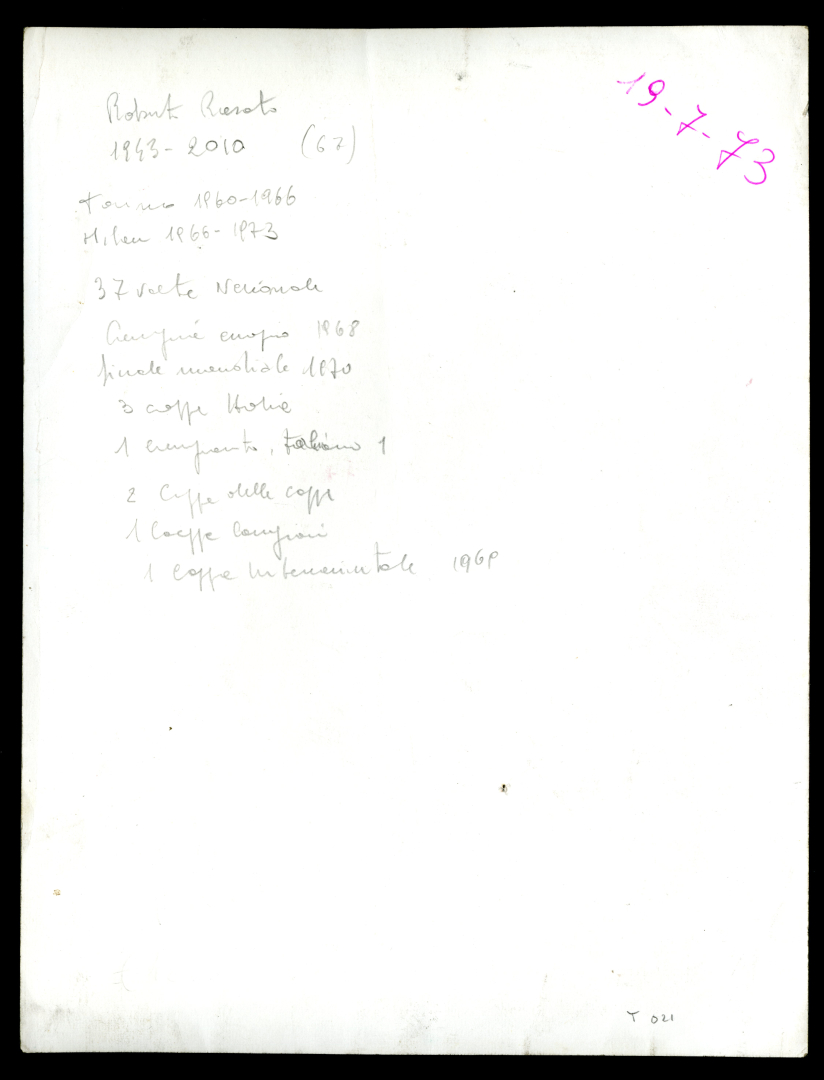 19-7-73
Roberto Rosato
1943-2010 (67)
Torino 1960-1966
Milan 1966-1973
37 volte Nazionale
Campione europeo 1968
finale mondiale 1970
3 coppe Italia
1 campionato, italiano 1
2 Coppe delle coppe
1 Coppa Campioni
1 Coppa Intercontinentale 1969
T 021